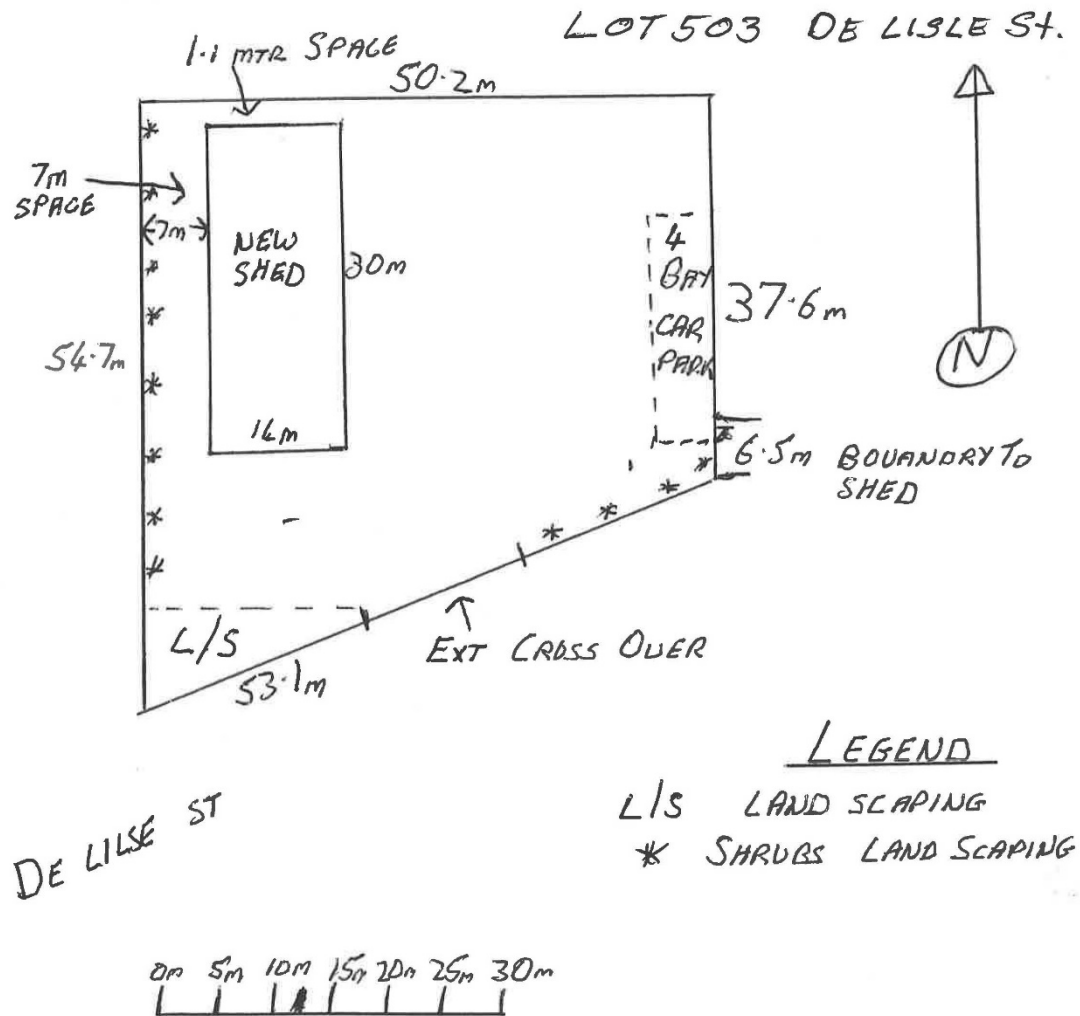 LOT 503 DE LISLE St.
1.1 MTR SPACE
50.2m
7m
SPACE
7m
NEW
SHED
30m
4
BAY
CAR
PARK
37.6m
N
54.7m
6.5m BOUANDRY TO
SHED
L/S
EXT CROSS OVER
53.1m
LEGEND
L/S LAND SCAPING
* SHRUBS LAND SCAPING
DE LILSE ST
0m 5m 10m 15m 20m 25m 30m